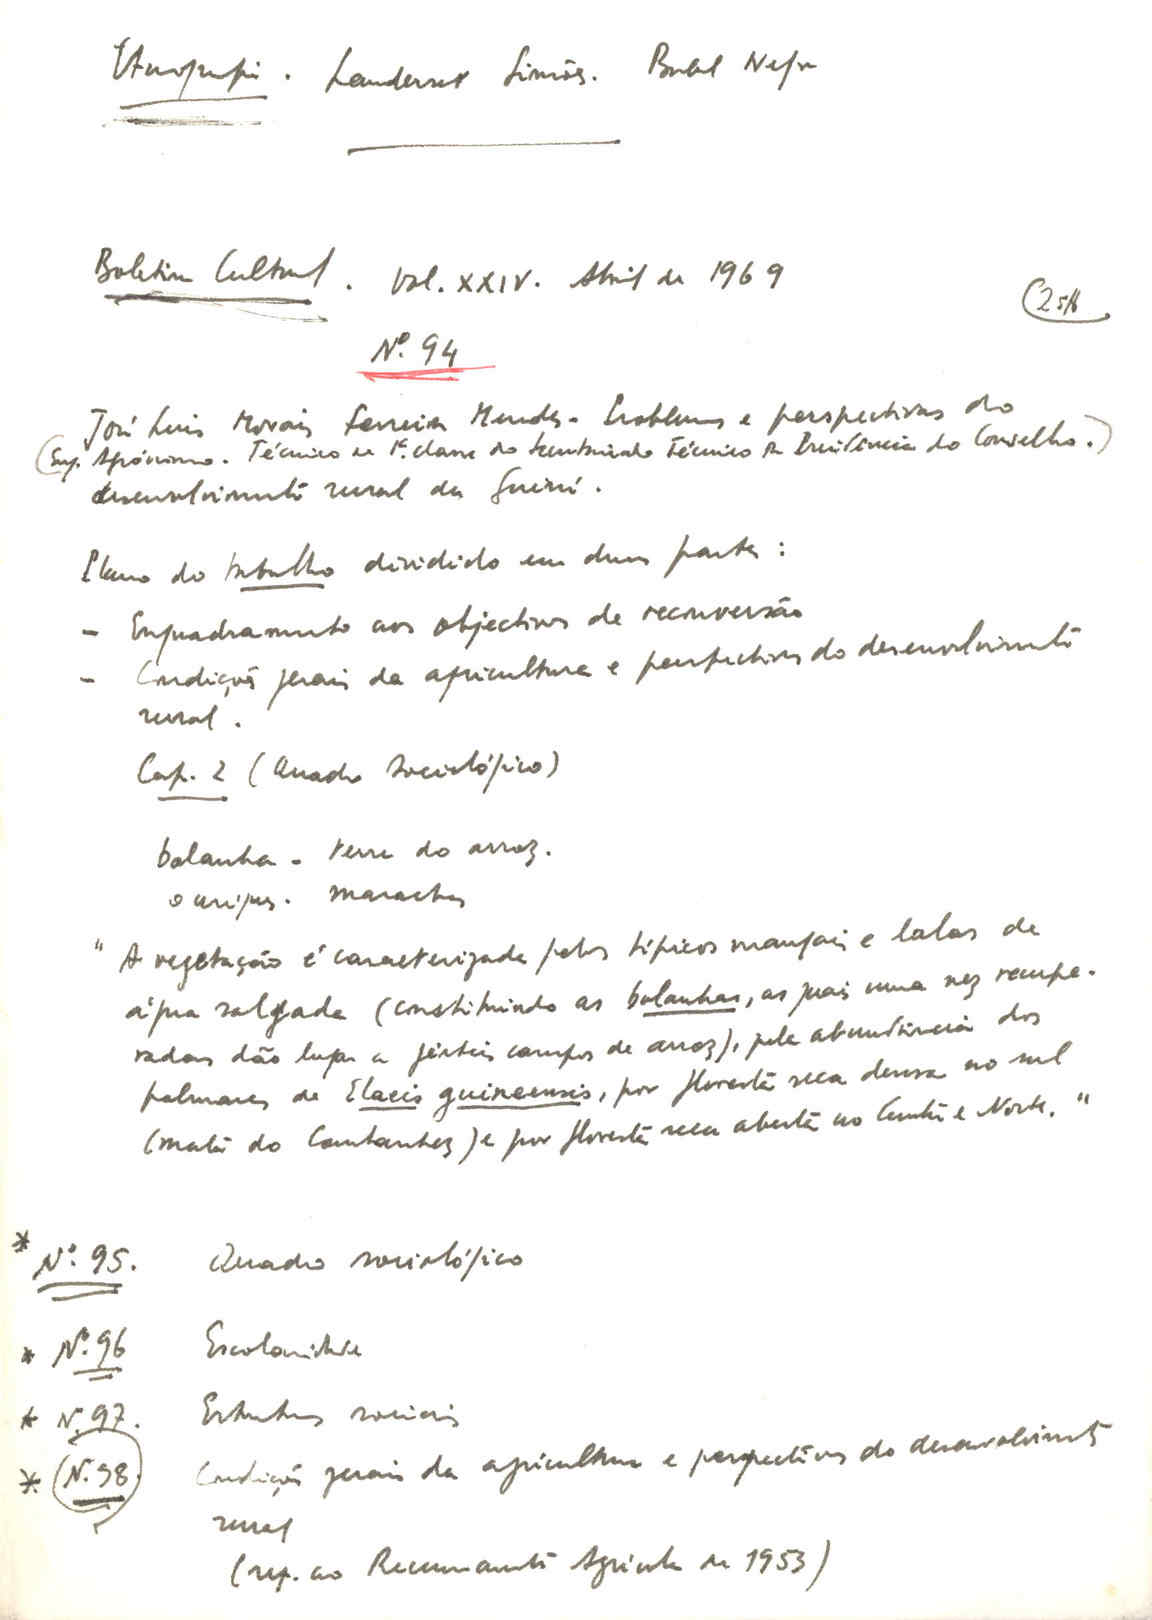 Etnografia. Landerset Simões. Babel Negra
Boletim Cultural. Vol. XXIV. Abril de 1969
Nº. 94
José Luis Morais Ferreira Mendes - Problemas e perspectivas do
(Eng. Agrónomo. Técnico de 1ª classe do Secretariado Técnico da Presidência do Conselho.)
desenvolvimento rural da Guiné.
Plano do trabalho dividido em duas partes:
- Enquadramento aos objectivos de reconversão
- Condições gerais da agricultura e perspectivas do desenvolvimento
rural.
Cap. 2 (Quadro sociológico)
bolanha - terra do arroz.
ouriques. marachas
"A vegetação é caracterizada pelos típicos mangais e lalas de
água salgada (constituindo as bolanhas, as quais uma vez recupe-
radas dão lugar a férteis campos de arroz), pela abundância dos
palmares de Elaeis guineensis, por floresta seca densa no sul
(mata do Cantanhez) e por floresta seca aberta no Centro e Norte."
* Nº. 95. Quadro sociológico
* Nº. 96 Escolaridade
* N. 97. Estatutos sociais
* N. 98. Condições gerais da agricultura e perspectivas do desenvolvimento
rural
(seg. ao Recenseamento Agrícola de 1953)